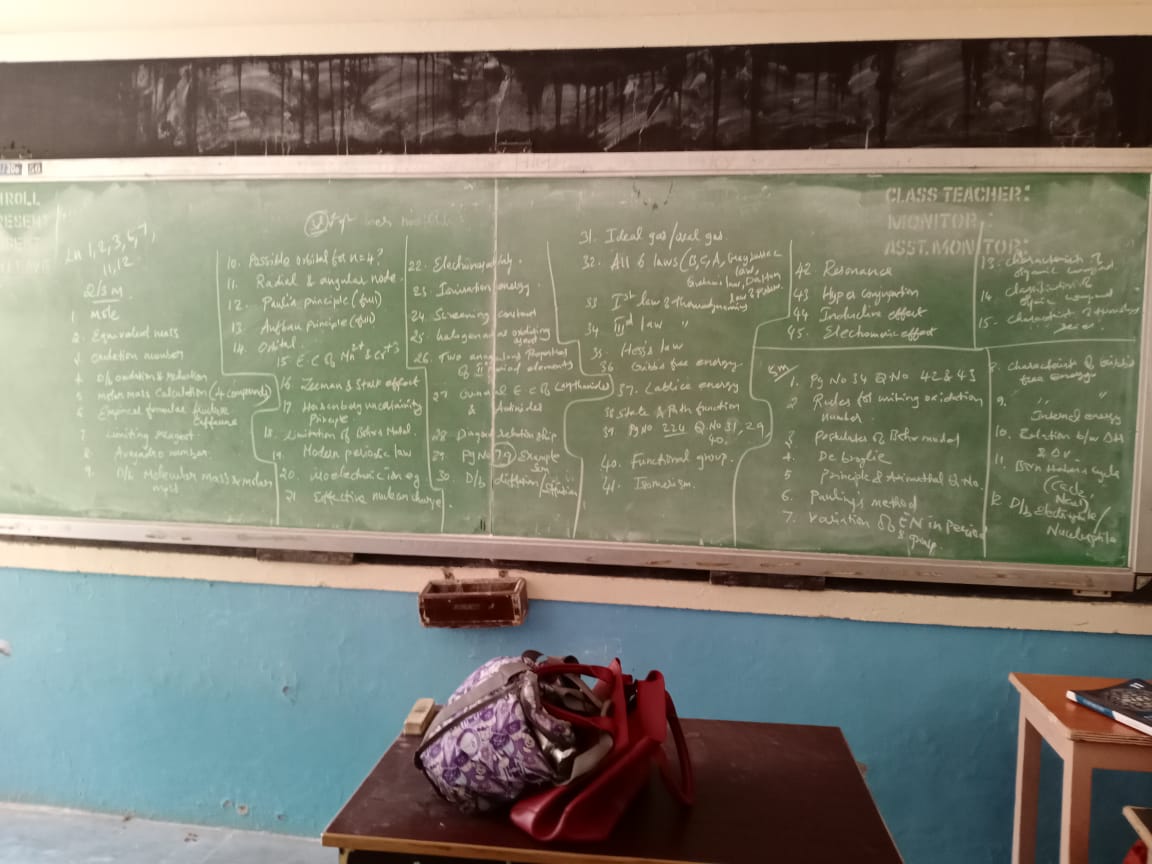 CLASS TEACHER:
MONITOR
ASST.MONITOR:
Ln 1,2,3,5,7,
11,12.
2/3 m
1. Mole
2. Equivalent mass
3. Oxidation number
4. D/b oxidation & reduction
5. Molar mass calculation (4 compounds)
6. Empirical formulae
7. Limiting reagent
8. Avogadro number
9. D/b Molecular mass & molar
mass
10. Possible orbital for n=4?
11. Radial & angular node
12. Pauli's principle (full)
13. Aufbau principle (full)
14. Orbital
15 E.C of Mn2+ & Cr+3
16. Zeeman & Stark effect
17. Heisenberg uncertainity
Principle
18. Limitation of Bohr's Model
19. Modern periodic law
20. isoelectronic ion eg
21 Effective nuclear charge
22. Electronegativity
23. Ionisation energy
24. Screening constant
25. halogens as oxidising
agent
26. Two anomalous Properties
of IInd period elements
27. & E.C of (lanthanides)
& Actinides
28 Diagonal relationship
29. Pg No 79 Example
30. D/b diffusion/effusion
31. Ideal gas/real gas
32. All 6 laws (B,C,A, Gay lussac
law,
Graham law, Dalton
law
33 Ist law of thermodynamics
34 IIIrd law "
35. Hess's law
36 Gibbs free energy
37. Lattice energy
38. State & Path function
39. Pg No 226 Q.No 31, 29
40.
40. Functional group.
41. Isomerism.
42. Resonance
43 Hyper conjugation
44 Inductive effect
45. Electromeric effect
5m
1. Pg No 34 Q.No 42 & 43
2 Rules for writing oxidation
number
3 Postulates of Bohr model
4. De broglie
5 Principle & Azimuthal Q.No.
6. Pauling's method
7. Variation of EN in period
& group.
8. Characteristics of Gibbs
free energy
9. "
Internal energy
10. Relation b/w ΔH
& ΔU.
11. Born Haber cycle
(CaCl2,
NaCl)
12. D/b Electrophile/
Nucleophile
13. Characteristics of
organic compound
14. Classification of
organic compound
15. Characteristics of homologous
series